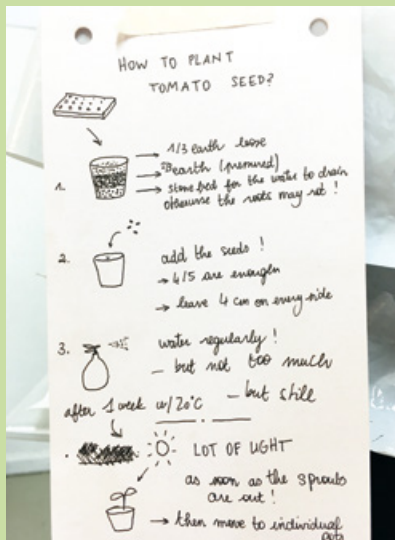 HOW TO PLANT
TOMATO SEED?
1.
→ 1/3 earth loose
→ earth (pressured)
→ stone bed for the water to drain
otherwise the roots may rot !
2.
add the seeds !
→ 4/5 are enough
→ leave 4 cm on every side
3.
water regularly !
– but not too much
– but still
after 1 week w/ 20°C
LOT OF LIGHT
as soon as the sprouts
are out !
→ then move to individual
pots